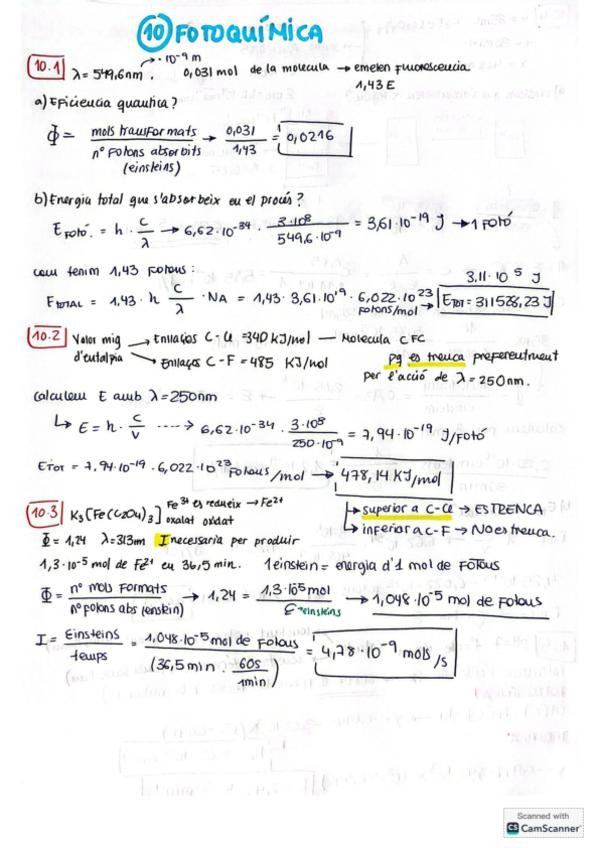 10 FOTOQUÍMICA
· 10⁻⁹ m
10.1 λ = 549,6nm. 0,031 mol de la molecula → emeten Fluorescencia
1,43 E
a) Eficiencia quantica?
Φ = mols transformats / nº Fotons absorbits (einsteins) → 0,031 / 1,43 = 0,0216
b) Energia total que s'absorbeix en el procés?
E FOTÓ. = h · c/λ → 6,62·10⁻³⁴ · 3·10⁸ / 549,6·10⁻⁹ = 3,61·10⁻¹⁹ J → 1 FOTÓ
com tenim 1,43 Fotons:
3,11·10⁵ J
E TOTAL = 1,43 · h c/λ · NA = 1,43 · 3,61·10¹⁹ · 6,022·10²³ Fotons/mol → E TOT = 311528,23 J
10.2 Valor mig d'entalpia → Enllaços C-Cl = 340 KJ/mol — Molecula CFC
→ Enllaços C-F = 485 KJ/mol
Pq es trenca preferentment
per l'acció de λ = 250nm.
Calculem E amb λ = 250nm
↳ E = h · c/v ----> 6,62·10⁻³⁴ · 3·10⁸ / 250·10⁻⁹ = 7,94·10⁻¹⁹ J/FOTÓ
E TOT = 7,94·10⁻¹⁹ · 6,022·10²³ Fotons/mol → 478,14 KJ/mol
↳ superior a C-Cl → ES TRENCA
↳ inferior a C-F → No es trenca.
10.3 K₃[Fe(C₂O₄)₃] Fe³⁺ es redueix → Fe²⁺
oxalat oxidat
Φ = 1,24 λ = 313nm I necessaria per produir
1,3·10⁻⁵ mol de Fe²⁺ en 36,5 min. 1 einstein = energia d'1 mol de FOTONS
Φ = nº mols Formats / nº Fotons abs (einstein) → 1,24 = 1,3·10⁵ mol / E einsteins → 1,048·10⁻⁵ mol de Fotons
I = Einsteins / temps = 1,048·10⁻⁵ mol de Fotons / (36,5 min · 60s / 1min) = 4,78·10⁻⁹ mols/s
Scanned with
CS CamScanner